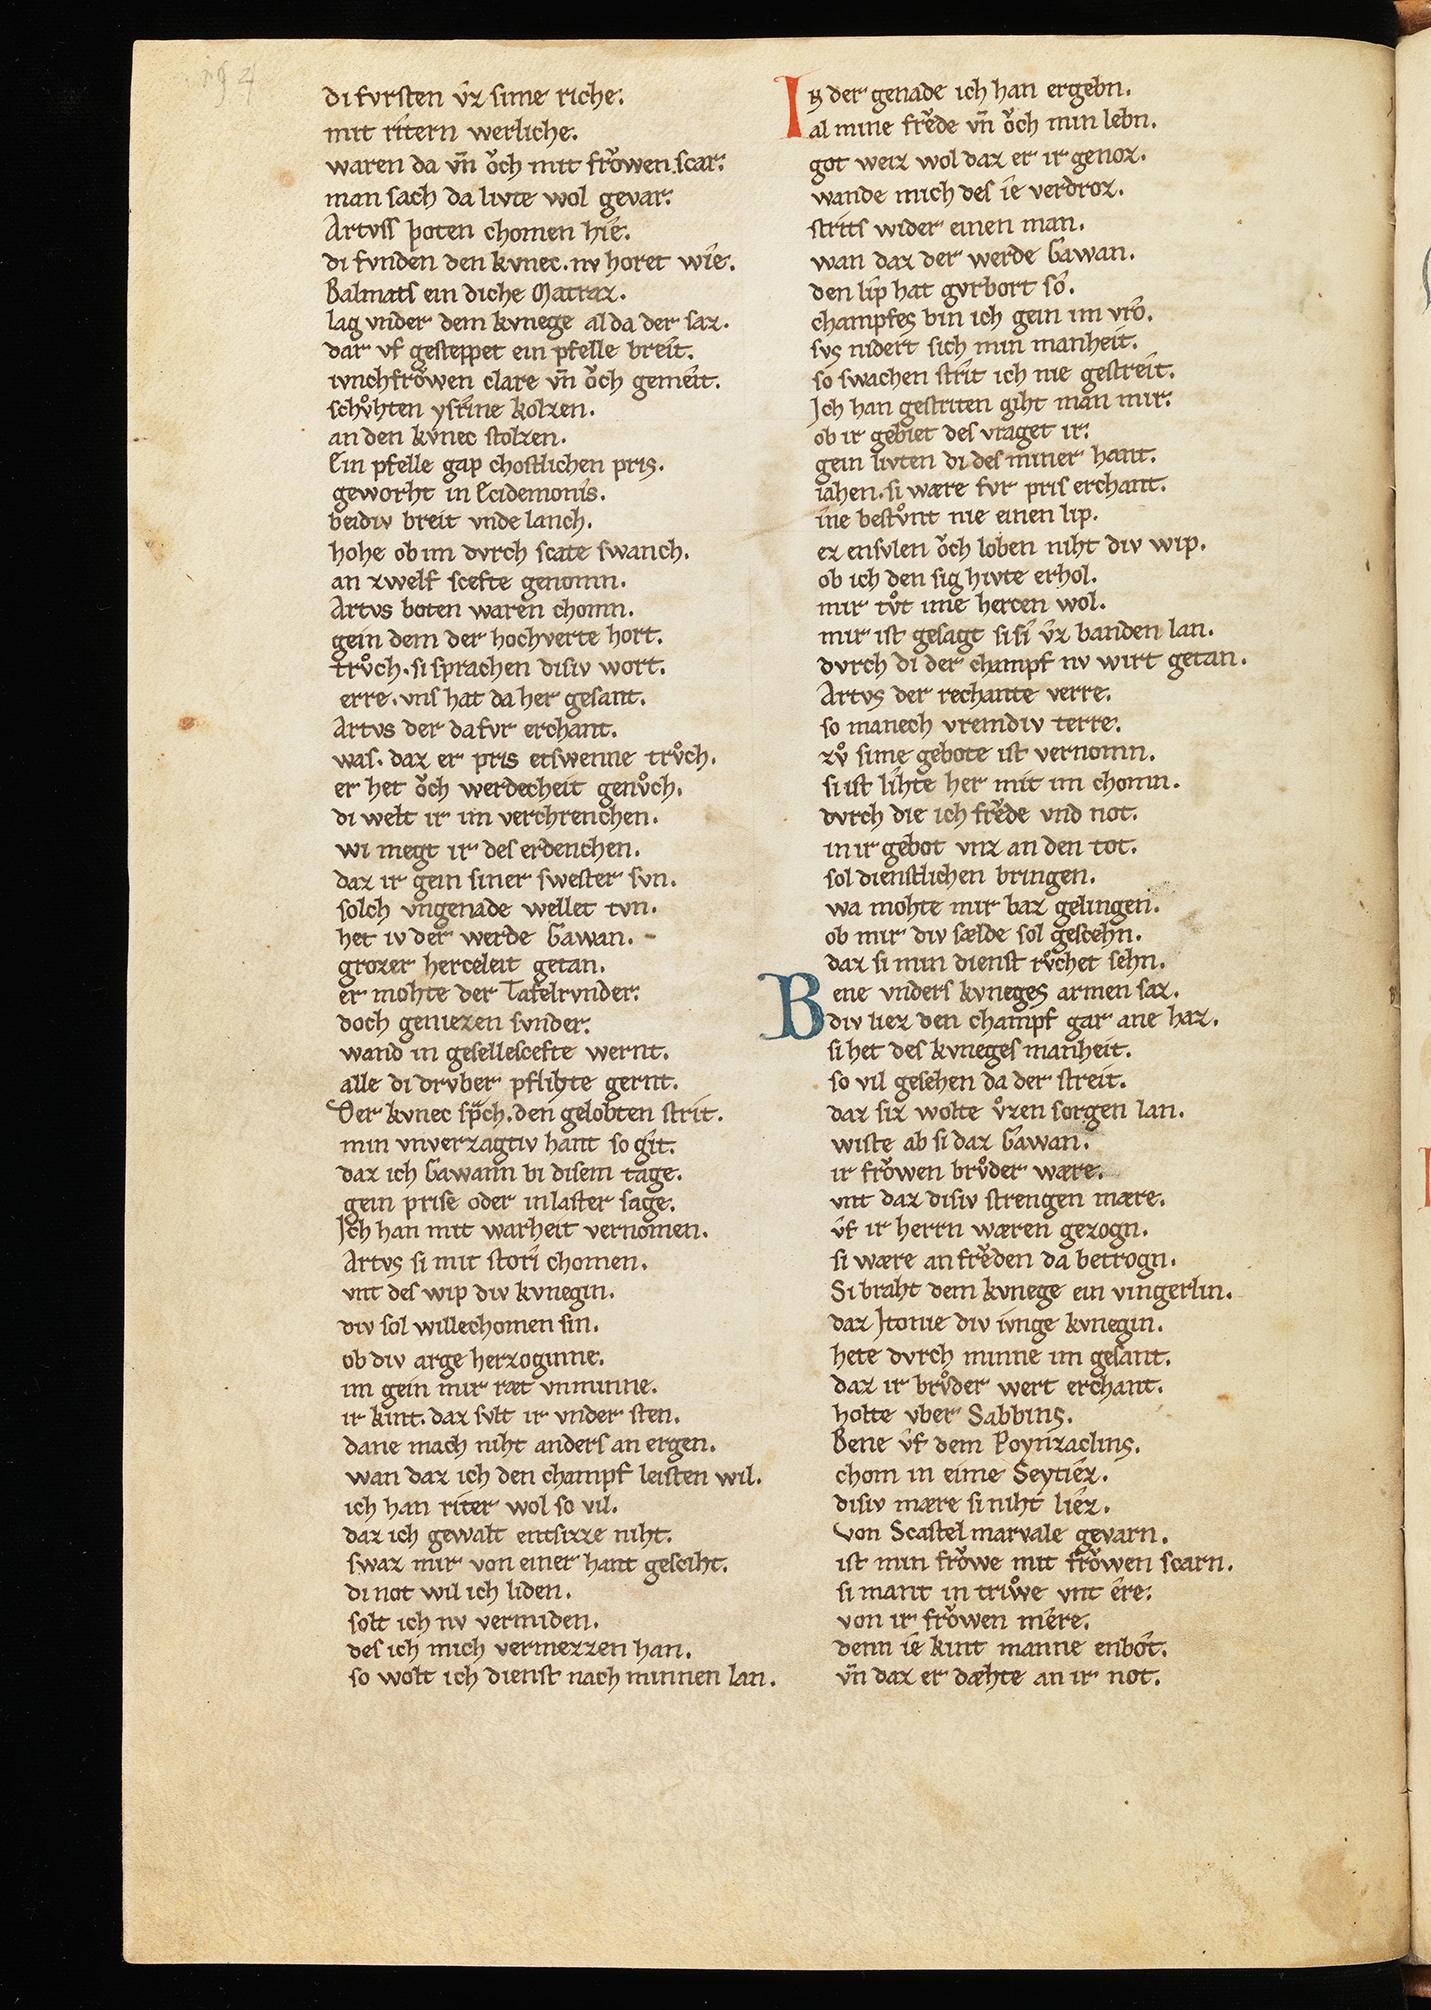 194
di fvrsten v̂z sime riche.
mit ritern werliche.
waren da vn̄ oͮch mit froͮwen scar.
man sach da livte wol gevar.
Artvss poten chomen hîe.
di fvnden den kvnec. nv horet wîe.
Balmats ein diche Matraz.
lag vnder dem kvnege al da der saz.
dar vf gesteppet ein pfelle breit.
ivnchfroͮwen clare vn̄ oͮch gemeit.
schvͦhten ysrine kolzen.
an den kvnec stolzen.
Ein pfelle gap chostlichen pris.
geworht in Ecidemonis.
beidiv breit vnde lanch.
hohe ob im dvrch scate swanch.
an zwelf scefte genomn.
Artvs boten waren chomn.
gein dem der hochverte hort.
trvͦch. si sprachen disiv wort.
erre. vns hat da her gesant.
Artvs der da fvr erchant.
was. daz er pris etswenne trvͦch.
er het oͮch werdecheit genvͦch.
di welt ir im verchrenchen.
wi megt ir des erdenchen.
daz ir gein siner swester svn.
solch vngenade wellet tvn.
het iv der werde Gawan.
grozer herceleit getan.
er mohte der Tafelrvnder.
doch geniezen svnder.
wand in gesellescefte wernt.
alle di drvber pflihte gernt.
Der kvnec spͣch. den gelobten strit.
min vnverzagtiv hant so git.
daz ich Gawann bi disem tage.
gein prise oder in laster sage.
Ich han mit warheit vernomen.
Artvs si mit stori chomen.
vnt des wip div kvnegin.
div sol willechomen sin.
ob div arge herzoginne.
im gein mir ræt vnminne.
ir kint. daz svlt ir vnder sten.
dane mach niht anders an ergen.
wan daz ich den champf leisten wil.
ich han riter wol so vil.
daz ich gewalt entsizze niht.
swaz mir von einer hant gesciht.
di not wil ich liden.
solt ich nv vermiden.
des ich mich vermezzen han.
so wolt ich dienst nach minnen lan.
In der genade ich han ergebn.
al mine frͤede vn̄ oͮch min lebn.
got weiz wol daz er ir genoz.
wande mich des îe verdroz.
strits wider einen man.
wan daz der werde Gawan.
den lip hat gvrbort so.
champfes bin ich gein im vro.
svs nidert sich min manheit.
so swachen strit ich nie gestreit.
Ich han gestriten giht man mir.
ob ir gebiet des vraget ir.
gein livten di des miner hant.
iahen. si wære fvr pris erchant.
ine bestvͦnt nie einen lip.
ez ensvlen oͮch loben niht div wip.
ob ich den sig hivte erhol.
mir tvͦt ime hercen wol.
mir ist gesagt si si v̂z banden lan.
dvrch di der champf nv wirt getan.
Artvs der rechante verre.
so manech vremdiv terre.
zvͦ sime gebote ist vernomn.
si ist lihte her mit im chomn.
dvrch die ich frͤede vnd not.
in ir gebot vnz an den tot.
sol dienstlichen bringen.
wa mohte mir baz gelingen.
ob mir div sælde sol gescehn.
daz si min dienst rvͦchet sehn.
Bene vnders kvneges armen saz.
div liez den champf gar ane haz.
si het des kvneges manheit.
so vil gesehen da der streit.
daz siz wolte vͦzen sorgen lan.
wiste ab si daz Gawan.
ir froͮwen brvͦder wære.
vnt daz disiv strengen mære.
v̂f ir herrn wæren gezogn.
si wære an frͤeden da betrogn.
Si braht dem kvnege ein vingerlin.
daz Itonie div ivnge kvnegin.
hete dvrch minne im gesant.
daz ir brvͦder wert erchant.
holte vber Sabbins.
Bene v̂f dem Poynzaclins.
chom in eime Seytiez.
disiv mære si niht liez.
von Scastel marvale gevarn.
ist min froͮwe mit froͮwen scarn.
si mant in triwͦe vnt ere.
von ir froͮwen mêre.
denn îe kint manne enbôt.
vn̄ daz er dæhte an ir not.